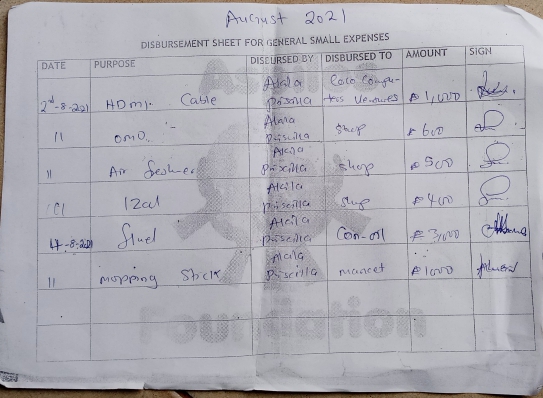 August 2021
DISBURSEMENT SHEET FOR GENERAL SMALL EXPENSES
DATE PURPOSE DISBURSED BY DISBURSED TO AMOUNT SIGN
2nd-8-2021 HDMI Cable Priscilla Ventures ₦ 1,000
11 OMO Priscilla Shop ₦ 600
11 Air Priscilla shop ₦ 500
11 Izal Priscilla Shop ₦ 400
4-8-2021 fluel Priscilla Con-oil ₦ 3,000
11 mopping Stick Priscilla market ₦ 1000
Foundation